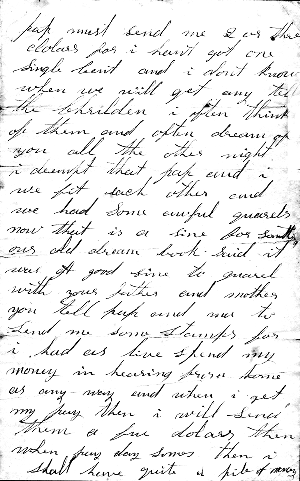 pap must send me 2 or three
dolars for i haint got one
single cent and i dont know
when we will get any tell
the children i often think
of them and often dream of
you all the other night
i dreampt that pap and i
we fit each other and
we had some awful quarels
now that is a sine for
our old dream book said it
was A good sine to quarel
with your father and mother
you tell pap and mar to
send me some stamps for
i had as live spend my
money in hearing from home
as any-way and when i get
my pay then i will send
them a few dolars then
when pay day comes then i
shall have quite a pile of money